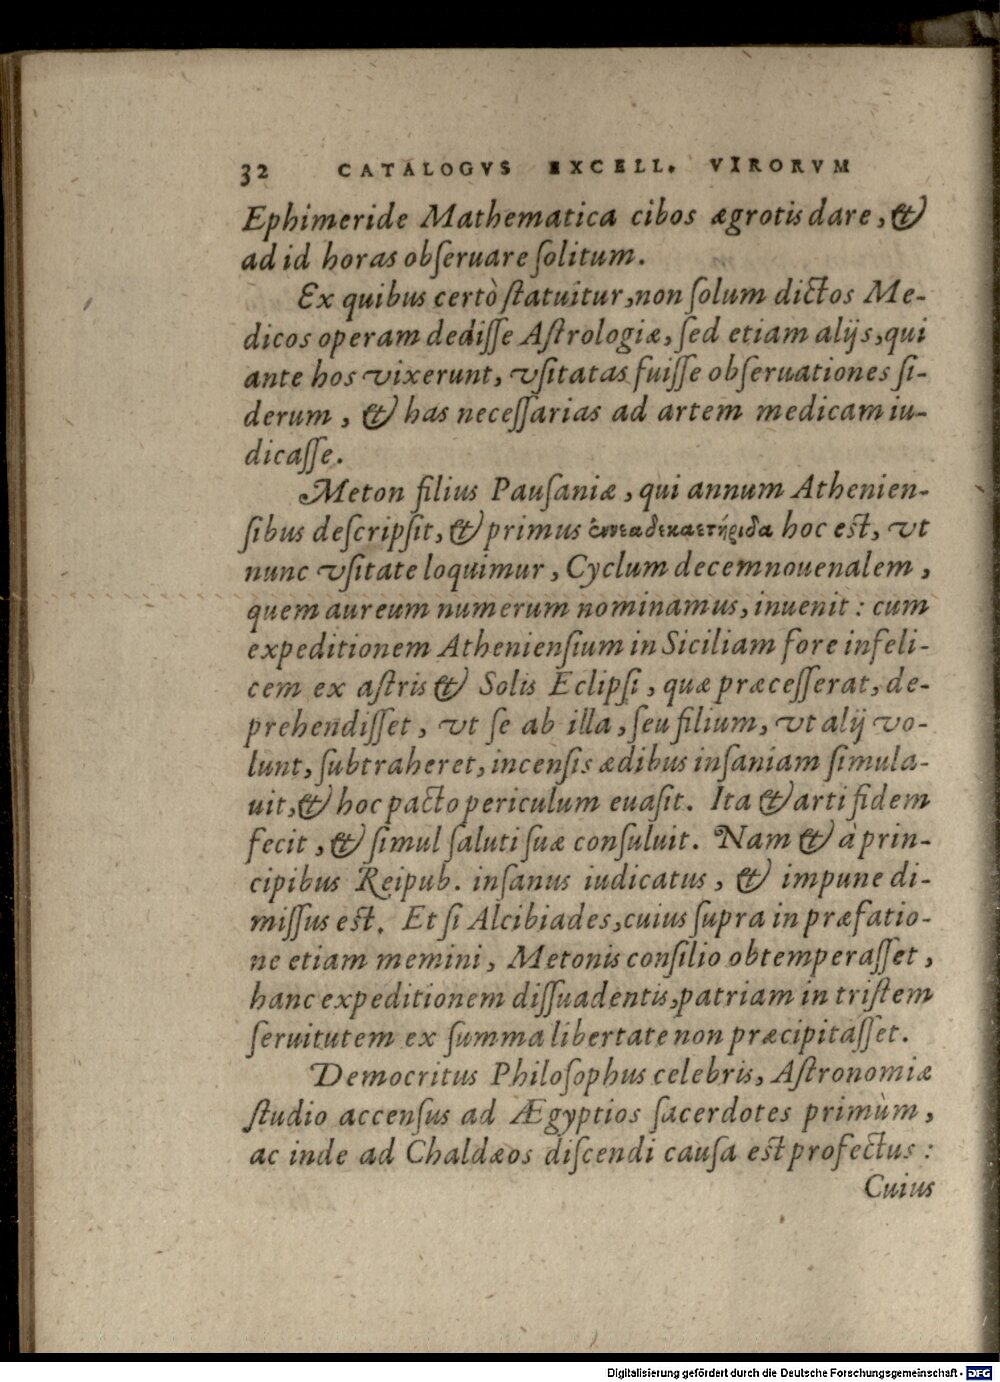 32 CATALOGVS EXCELL. VIRORVM
Ephimeride Mathematica cibos ægrotis dare, &
ad id horas obſeruare ſolitum.
Ex quibus certò ſtatuitur, non ſolum dictos Me-
dicos operam dediſſe Aſtrologiæ, ſed etiam alijs, qui
ante hos vixerunt, vſitatas fuiſſe obſeruationes ſi-
derum, & has neceſſarias ad artem medicam iu-
dicaſſe.
Meton filius Pauſaniæ, qui annum Athenien-
ſibus deſcripſit, & primus ἐννεαδεκαετήριδα hoc est, vt
nunc vſitate loquimur, Cyclum decemnouenalem,
quem aureum numerum nominamus, inuenit: cum
expeditionem Athenienſium in Siciliam fore infeli-
cem ex aſtris & Solis Eclipſi, quæ præceſſerat, de-
prehendiſſet, vt ſe ab illa, ſeu filium, vt alij vo-
lunt, ſubtraheret, incenſis ædibus inſaniam ſimula-
uit, & hoc pacto periculum euaſit. Ita & arti fidem
fecit, & ſimul ſaluti ſuæ conſuluit. Nam & à prin-
cipibus Reipub. inſanus iudicatus, & impune di-
miſſus est. Et ſi Alcibiades, cuius ſupra in præfatio-
ne etiam memini, Metonis conſilio obtemperaſſet,
hanc expeditionem diſſuadentis, patriam in triſtem
ſeruitutem ex ſumma libertate non præcipitaſſet.
Democritus Philoſophus celebris, Aſtronomiæ
ſtudio accenſus ad Ægyptios ſacerdotes primùm,
ac inde ad Chaldæos diſcendi cauſa est profectus:
Cuius
Digitalisierung gefördert durch die Deutsche Forschungsgemeinschaft - DFG